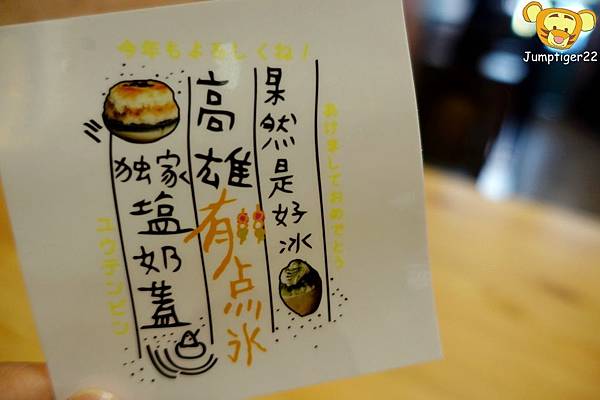 今年もよろしくね！
あけましておめでとう
果然是好冰
高雄
有点氷
独家
塩奶蓋
ユウテンピン
Jumptiger22